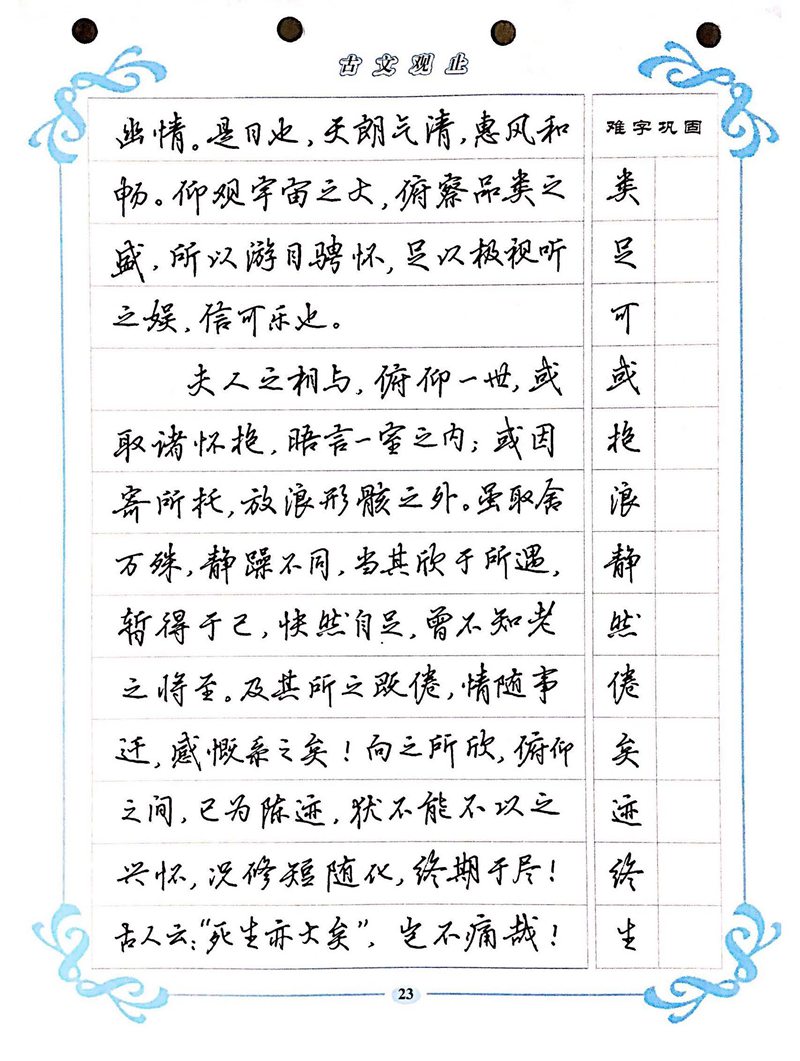 古文观止
幽情。是日也，天朗气清，惠风和
畅。仰观宇宙之大，俯察品类之
盛，所以游目骋怀，足以极视听
之娱，信可乐也。
夫人之相与，俯仰一世，或
取诸怀抱，晤言一室之内；或因
寄所托，放浪形骸之外。虽取舍
万殊，静躁不同，当其欣于所遇，
暂得于己，快然自足，曾不知老
之将至。及其所之既倦，情随事
迁，感慨系之矣！向之所欣，俯仰
之间，已为陈迹，犹不能不以之
兴怀，况修短随化，终期于尽！
古人云：“死生亦大矣”，岂不痛哉！
难字巩固
类
足
可
或
抱
浪
静
然
倦
矣
迹
终
生
23